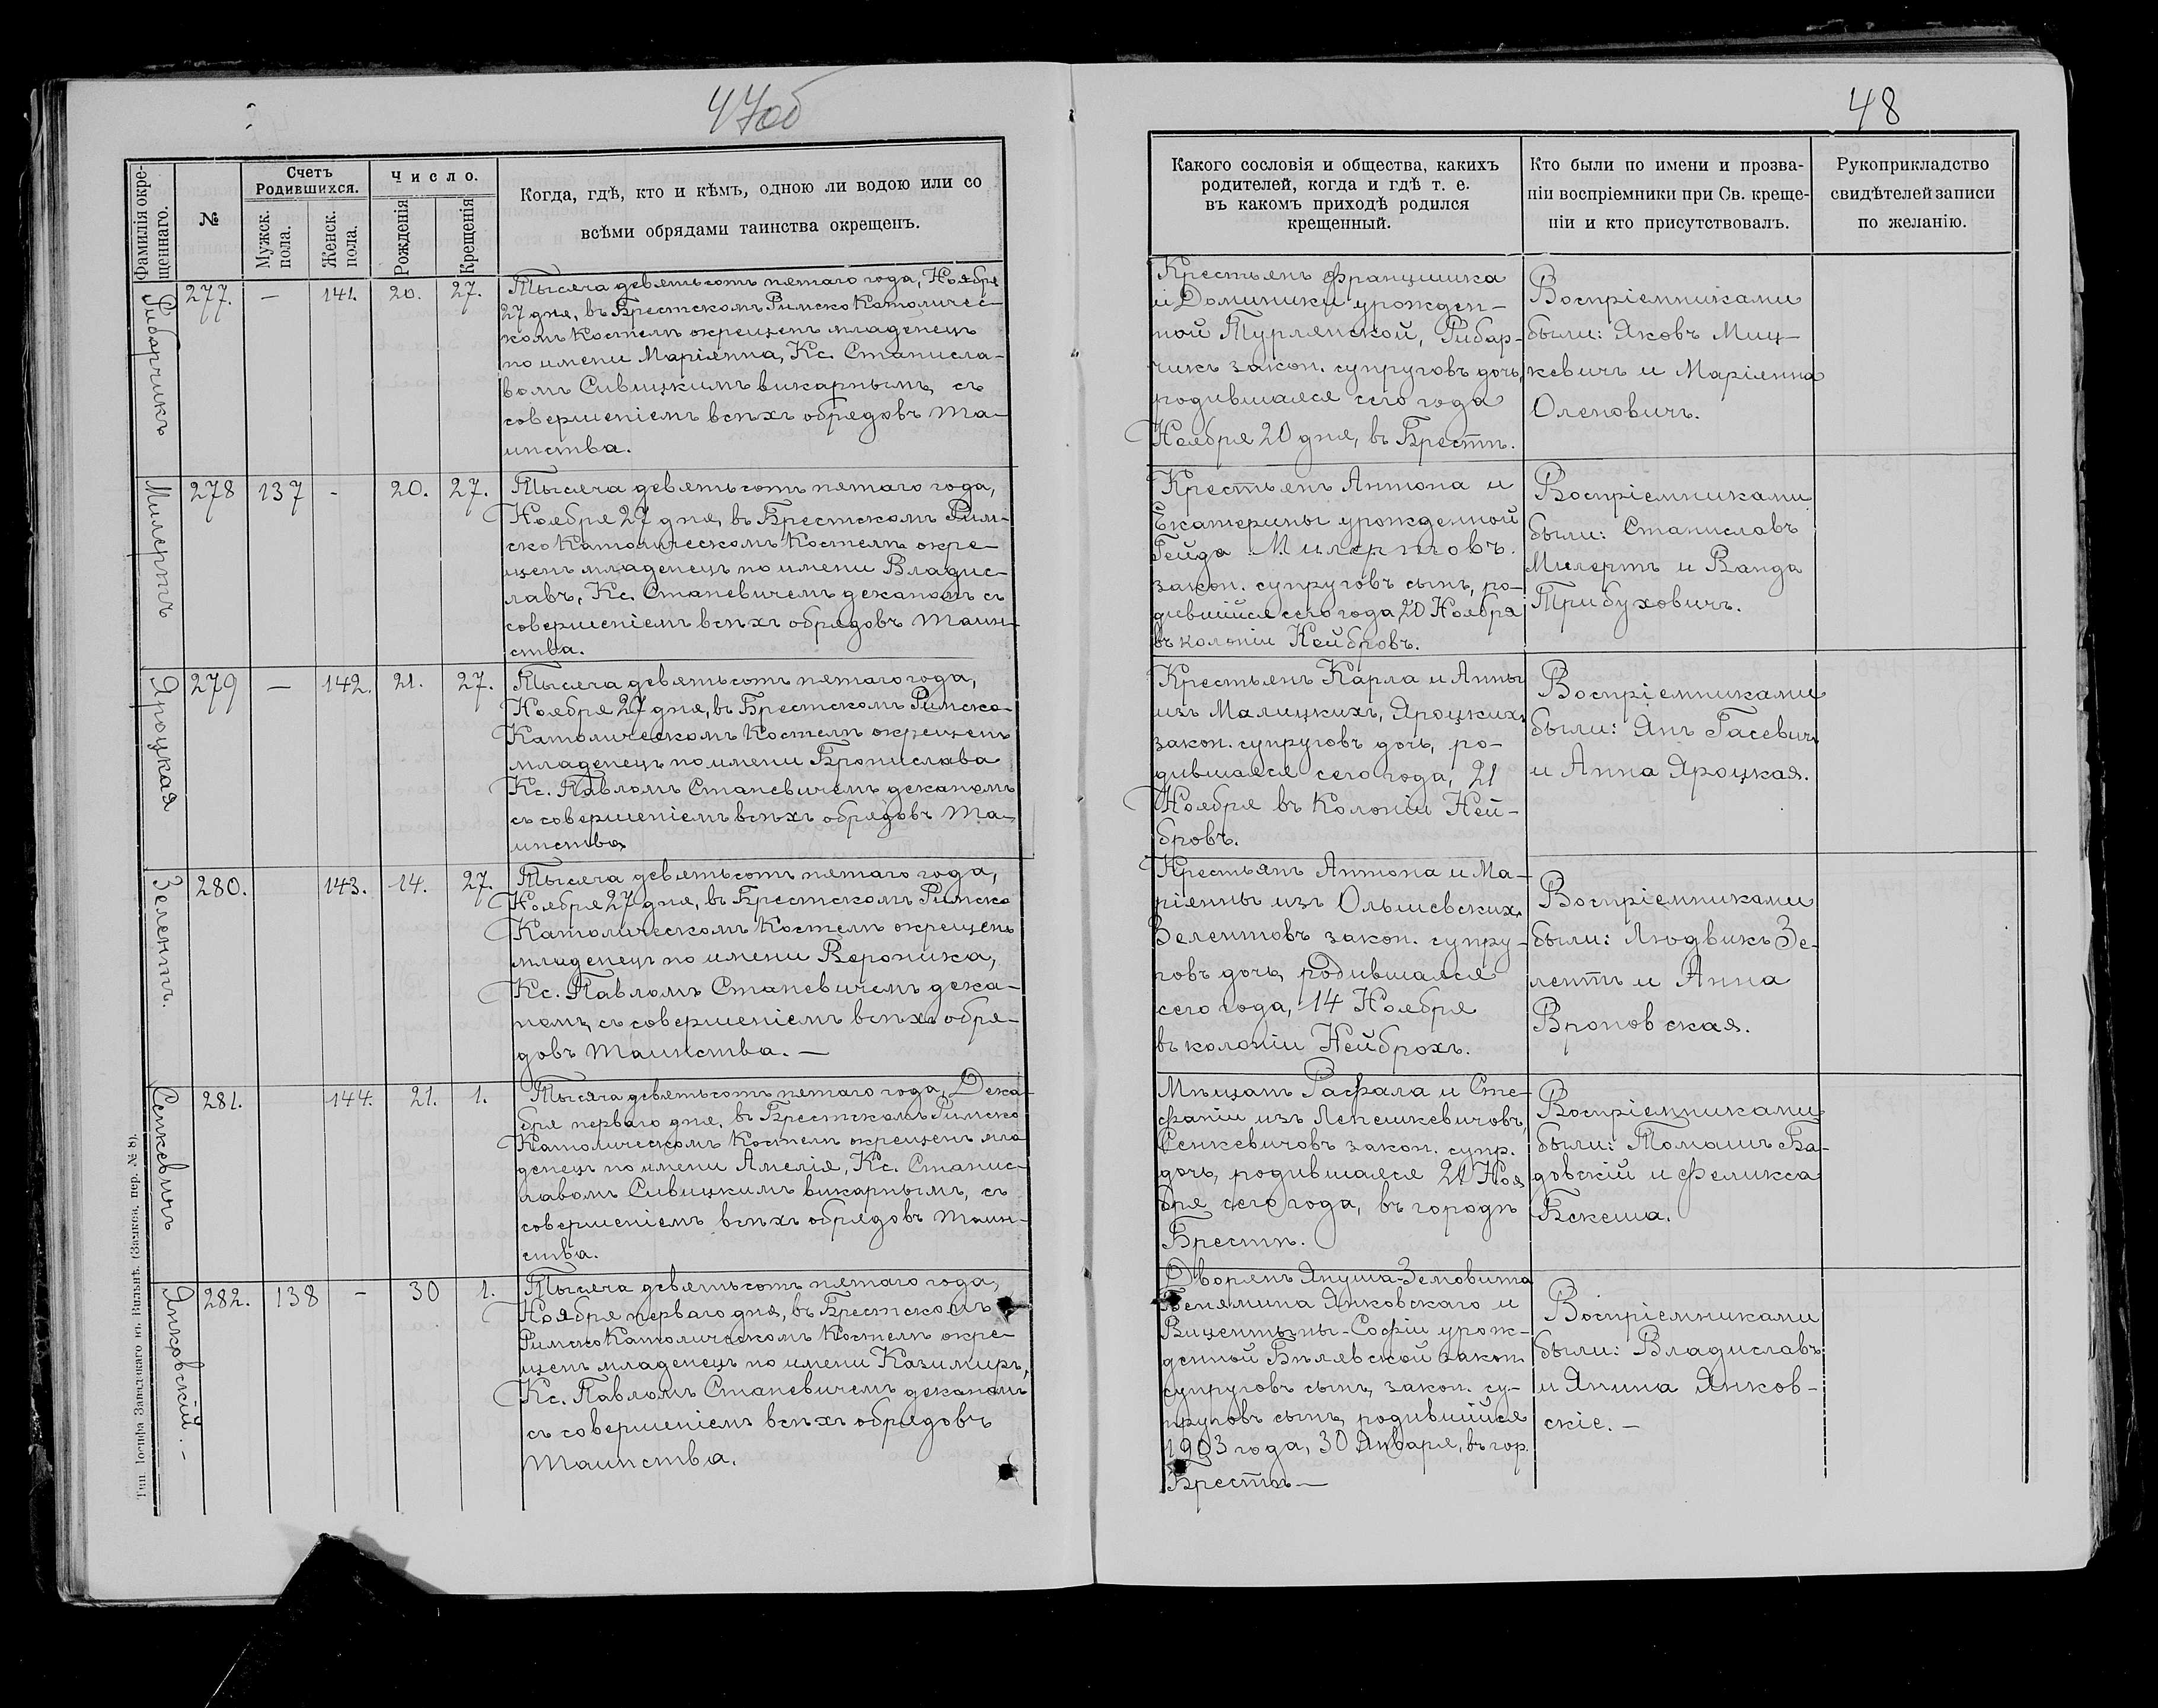 47об
Фамилія окре-
щеннаго.
№
Счетъ
Родившихся.
Мужск.
пола.
Женск.
пола.
Число.
Рожденія
Крещенія
Когда, гдѣ, кто и кѣмъ, одною ли водою или со
всѣми обрядами таинства окрещенъ.
Рибарчикъ
277. — 141. 20. 27.
Тысяча девятьсотъ пятаго года, Ноября
27 дня, въ Брестскомъ Римско Католичес-
комъ Костелѣ окрещенъ младенецъ
по имени Маріянна, Кс. Станисла-
вомъ Сивицкимъ викарнымъ, съ
совершеніемъ всѣхъ обрядовъ Та-
инства.
Милертъ
278 137 - 20. 27.
Тысяча девятьсотъ пятаго года,
Ноября 27 дня, въ Брестскомъ Рим-
ско Католическомъ Костелѣ окре-
щенъ младенецъ по имени Владис-
лавъ, Кс. Станевичемъ деканомъ съ
совершеніемъ всѣхъ обрядовъ Таин-
ства.
Яроцкая
279 — 142. 21. 27.
Тысяча девятьсотъ пятаго года,
Ноября 27 дня, въ Брестскомъ Римско-
Католическомъ Костелѣ окрещенъ
младенецъ по имени Бронислава
Кс. Павломъ Станевичемъ деканомъ
съ совершеніемъ всѣхъ обрядовъ Та-
инства
Зелентъ.
280. 143. 14. 27.
Тысяча девятьсотъ пятаго года,
Ноября 27 дня, въ Брестскомъ Римско
Католическомъ Костелѣ окрещенъ
младенецъ по имени Вероника,
Кс. Павломъ Станевичемъ дека-
номъ, съ совершеніемъ всѣхъ обря-
довъ Таинства. —
Сенкевичъ
281. 144. 21. 1.
Тысяча девятьсотъ пятаго года, Дека-
бря перваго дня, въ Брестскомъ Римско
Католическомъ Костелѣ окрещенъ мла
денецъ по имени Амелія, Кс. Станис-
лавомъ Сивицкимъ викарнымъ, съ
совершеніемъ всѣхъ обрядовъ Таин-
ства.
Янковскій. —
282. 138 - 30 1.
Тысяча девятьсотъ пятаго года,
Ноября перваго дня, въ Брестскомъ
Римско Католическомъ Костелѣ окре-
щенъ младенецъ по имени Казимиръ,
Кс. Павломъ Станевичемъ деканомъ
съ совершеніемъ всѣхъ обрядовъ
Таинства.
Тип. Іосифа Завадзкаго въ Вильнѣ. (Замков. пер. № 8).
48
Какого сословія и общества, какихъ
родителей, когда и гдѣ т. е.
въ какомъ приходѣ родился
крещенный.
Кто были по имени и прозва-
ніи воспріемники при Св. креще-
ніи и кто присутствовалъ.
Рукоприкладство
свидѣтелей записи
по желанію.
Крестьянъ Францишка
и Доминики урожден-
ной Турлянской, Рибар-
чикъ закон. супруговъ дочь,
родившаяся сего года
Ноября 20 дня, въ Брестѣ.
Воспріемниками
были: Яковъ Миц-
кевичъ и Маріянна
Оленовичъ.
Крестьянъ Антона и
Екатерины урожденной
Гейда Милертовъ.
закон. супруговъ сынъ, ро-
дившійся сего года 20 Ноября
въ колоніи Нейбровъ.
Воспріемниками
были: Станиславъ
Милертъ и Ванда
Трибуховичъ.
Крестьянъ Карла и Анны
изъ Малицкихъ, Яроцкихъ
закон. супруговъ дочь, ро-
дившаяся сего года, 21
Ноября въ Колоніи Ней-
бровъ.
Воспріемниками
были: Янъ Гасевичъ
и Анна Яроцкая.
Крестьянъ Антона и Ма-
ріянны изъ Ольшевскихъ
Зелентовъ закон. супру-
говъ дочь, родившаяся
сего года, 14 Ноября
въ колоніи Нейброхъ.
Воспріемниками
были: Людвикъ Зе-
лентъ и Анна
Вроновская.
Мѣщанъ Рафала и Сте-
фаніи изъ Лепешкевичовъ,
Сенкевичовъ закон. супр.
дочь, родившаяся 21 Ноя
бря сего года, въ городѣ
Брестѣ.
Воспріемниками
были: Томашъ Ба-
довскій и Феликса
Бекеша.
Дворянъ Януша-Земовита
Бенямина Янковскаго и
Вицентыны-Софіи урож-
денной Бѣлявской закон.
супруговъ сынъ, закон. су-
пруговъ сынъ, родившійся
1903 года, 30 Января, въ гор.
Брестѣ —
Воспріемниками
были: Владиславъ
и Янина Янков-
скіе. —